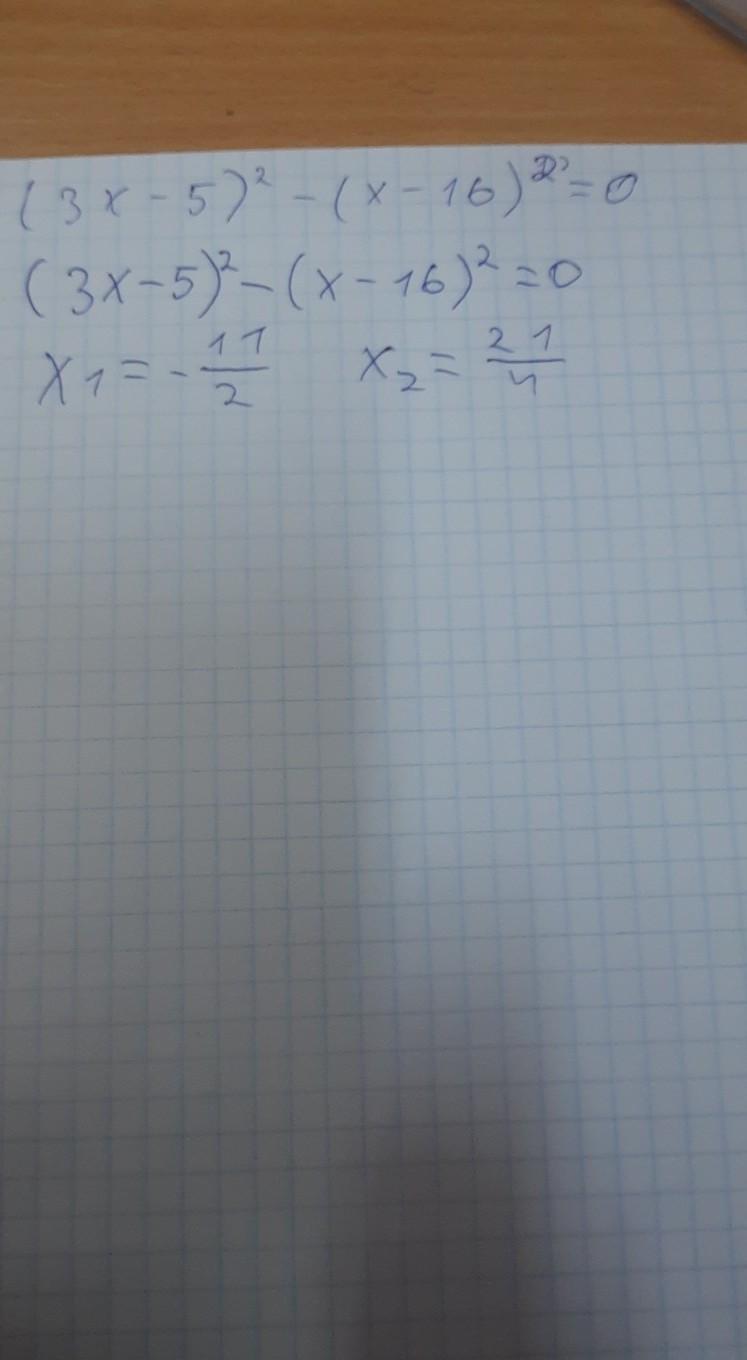 (3x-5)²-(x-16)²=0
(3x-5)²-(x-16)²=0
x₁=-11/2 x₂=21/4